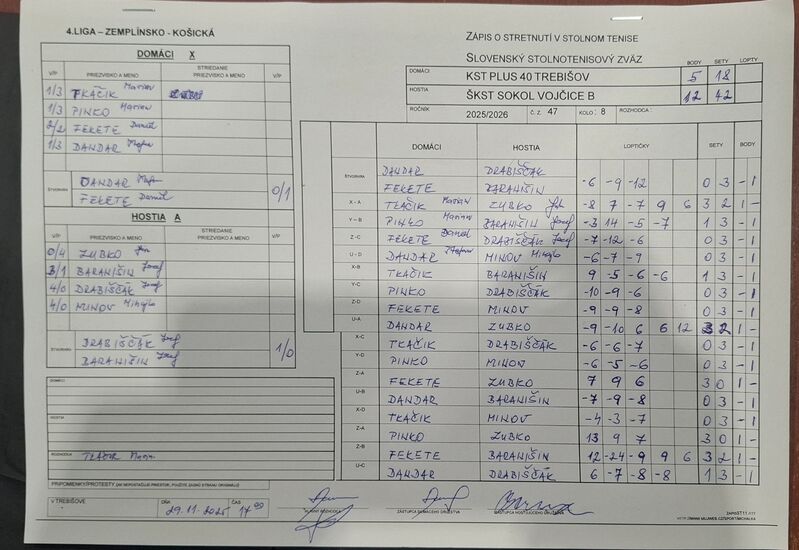 4.LIGA – ZEMPLÍNSKO - KOŠICKÁ
DOMÁCI X
V/P PRIEZVISKO A MENO STRIEDANIE PRIEZVISKO A MENO V/P
1/3 TKÁČIK Marian
1/3 PINKO Marian
2/2 FEKETE Daniel
1/3 DANDAR Štefan
ŠTVORHRA DANDAR Štefan 0/1
FEKETE Daniel
HOSTIA A
V/P PRIEZVISKO A MENO STRIEDANIE PRIEZVISKO A MENO V/P
0/4 ZUBKO Ján
3/1 BARANIŠIN Jozef
4/0 DRABIŠČÁK Jozef
4/0 MINOV Mihajlo
ŠTVORHRA DRABIŠČÁK Jozef 1/0
BARANIŠIN Jozef
DOMÁCI
HOSTIA
ROZHODCA TKÁČIK Marian
PRIPOMIENKY/PROTESTY
V TREBIŠOVE DŇA 29.11.2025 ČAS 17 00
ZÁPIS O STRETNUTÍ V STOLNOM TENISE
SLOVENSKÝ STOLNOTENISOVÝ ZVÄZ
BODY SETY LOPTY
DOMÁCI KST PLUS 40 TREBIŠOV 5 18
HOSTIA ŠKST SOKOL VOJČICE B 12 42
ROČNÍK 2025/2026 Č. Z. 47 KOLO : 8 ROZHODCA :
DOMÁCI HOSTIA LOPTIČKY SETY BODY
ŠTVORHRA DANDAR DRABIŠČÁK
FEKETE BARANIŠIN -6 -9 -12 0 3 - 1
X - A TKÁČIK Marian ZUBKO Ján -8 7 -7 9 6 3 2 1 -
Y – B PINKO Marian BARANIŠIN Jozef -3 14 -5 -7 1 3 - 1
Z -C FEKETE Daniel DRABIŠČÁK Jozef -7 -12 -6 0 3 - 1
U - D DANDAR Štefan MINOV Mihajlo -6 -7 -9 0 3 - 1
X-B TKÁČIK BARANIŠIN 9 -5 -6 -6 1 3 - 1
Y-C PINKO DRABIŠČÁK -10 -9 -6 0 3 - 1
Z-D FEKETE MINOV -9 -9 -8 0 3 - 1
U-A DANDAR ZUBKO -9 -10 6 6 12 3 2 1 -
X-C TKÁČIK DRABIŠČÁK -6 -6 -7 0 3 - 1
Y-D PINKO MINOV -6 -5 -6 0 3 - 1
Z-A FEKETE ZUBKO 7 9 6 3 0 1 -
U-B DANDAR BARANIŠIN -7 -9 -8 0 3 - 1
X-D TKÁČIK MINOV -4 -3 -7 0 3 - 1
Z-A PINKO ZUBKO 13 9 7 3 0 1 -
Z-B FEKETE BARANIŠIN 12 -24 -9 9 6 3 2 1 -
U-C DANDAR DRABIŠČÁK 6 -7 -8 -8 1 3 - 1
HLAVNÝ ROZHODCA ZÁSTUPCA DOMÁCEHO DRUŽSTVA ZÁSTUPCA HOSTUJÚCEHO DRUŽSTVA